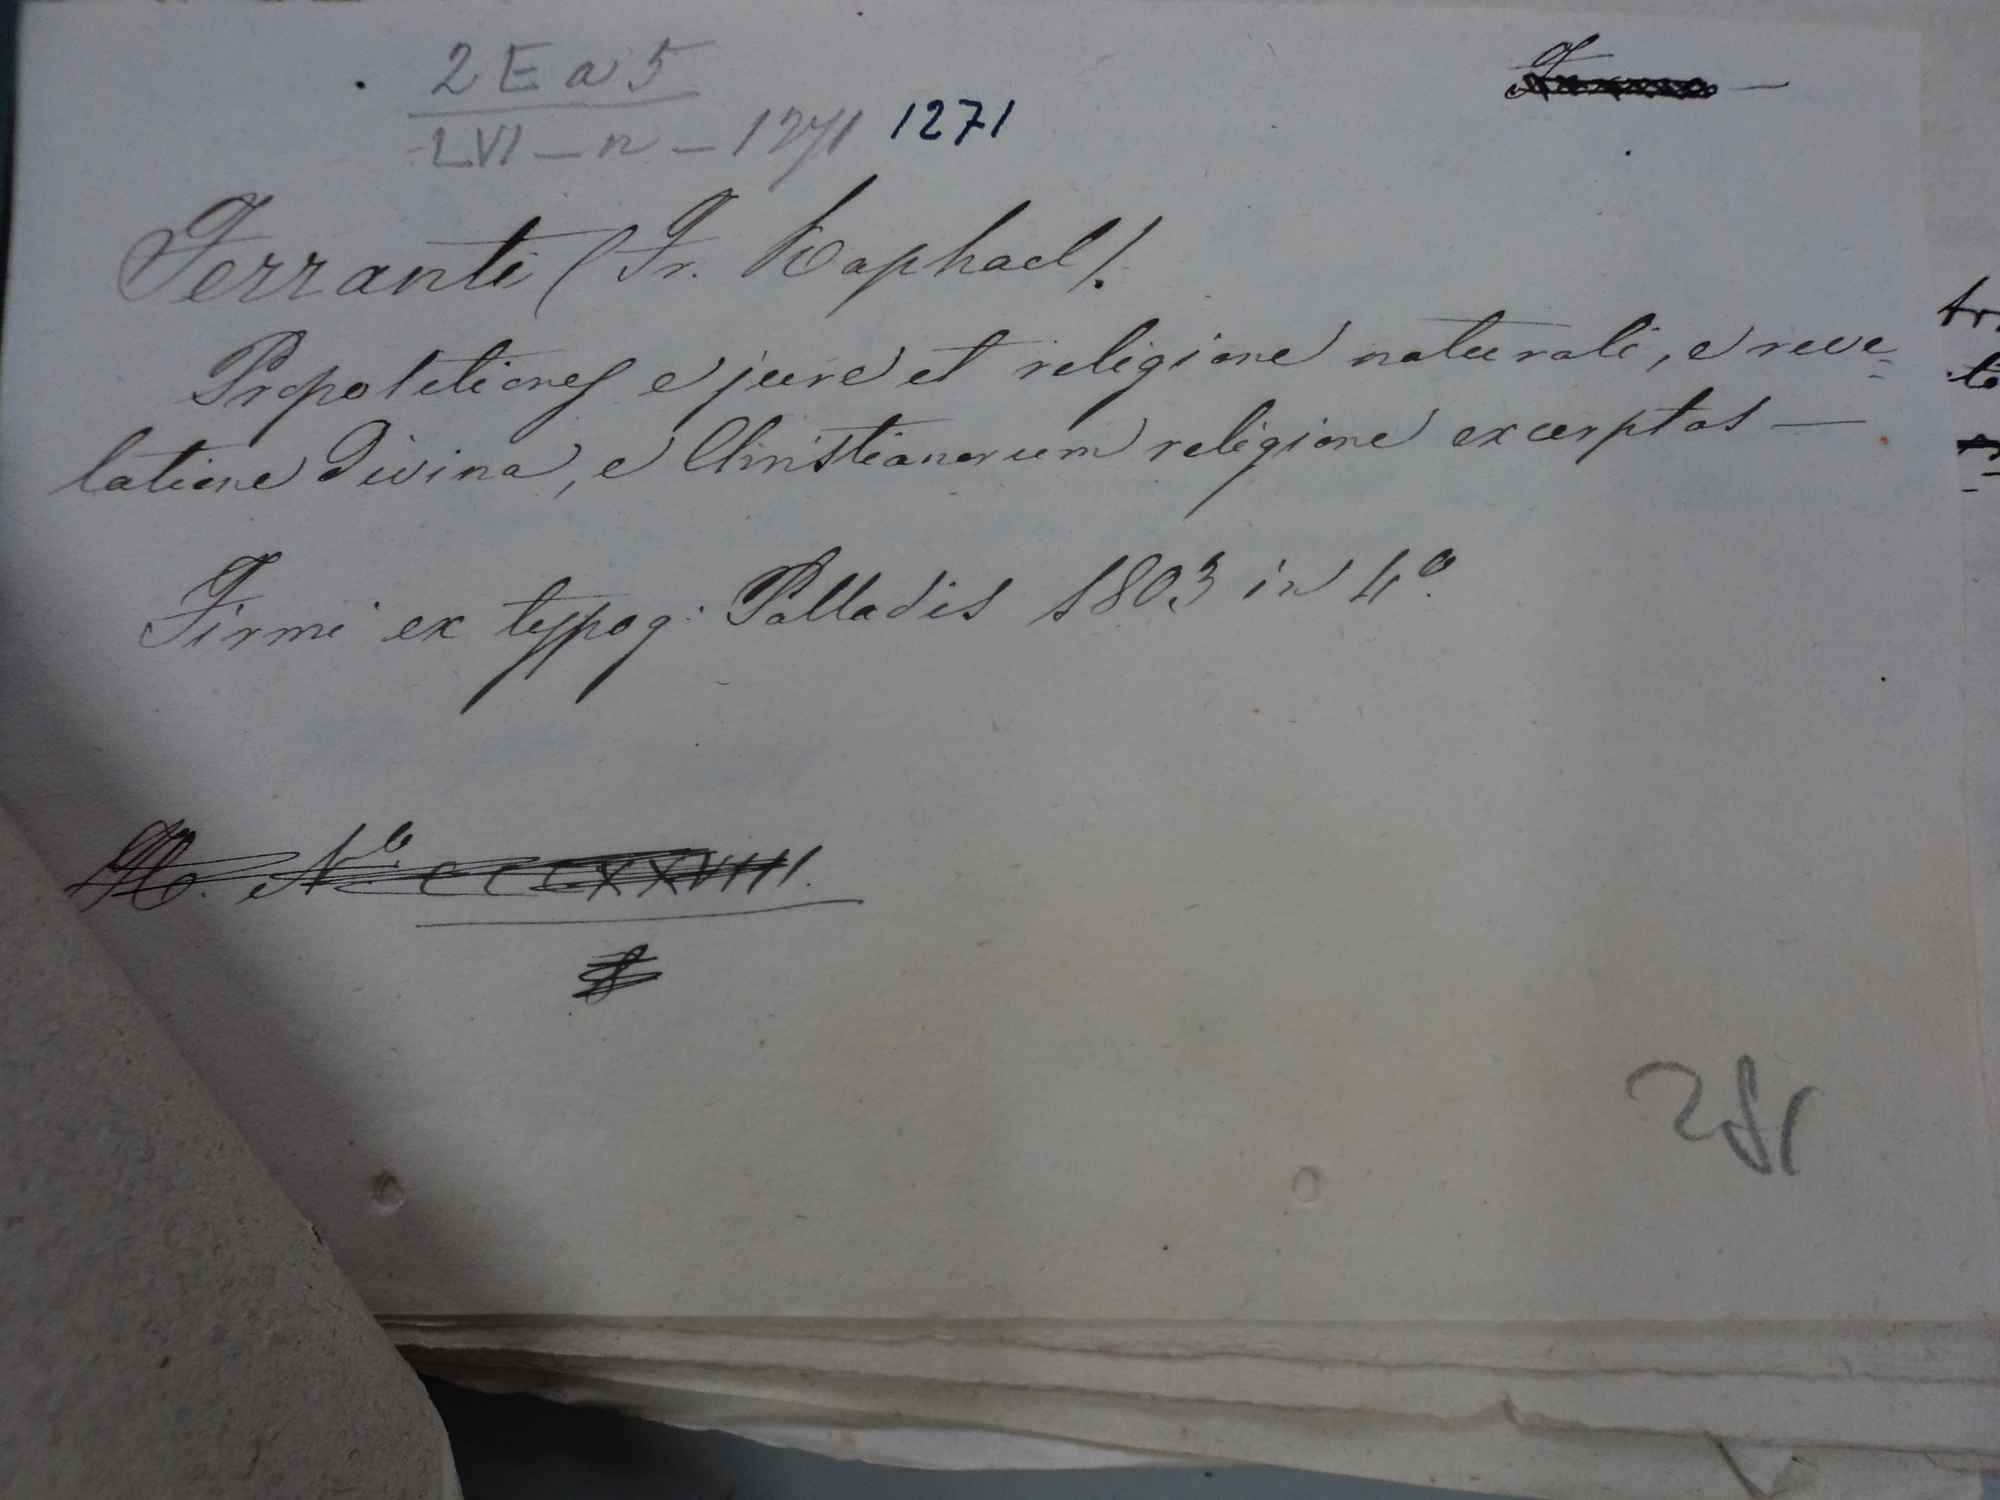 2 E a 5
LVI - n - 1271 1271
Ferranti (Fr. Raphael).
Propositiones e jure et religione naturali, e reve=
latione divina, e Christianorum religione excerptas —
Firmi ex typog: Palladis 1803 in 4º.
Nº CCCXXVIII.